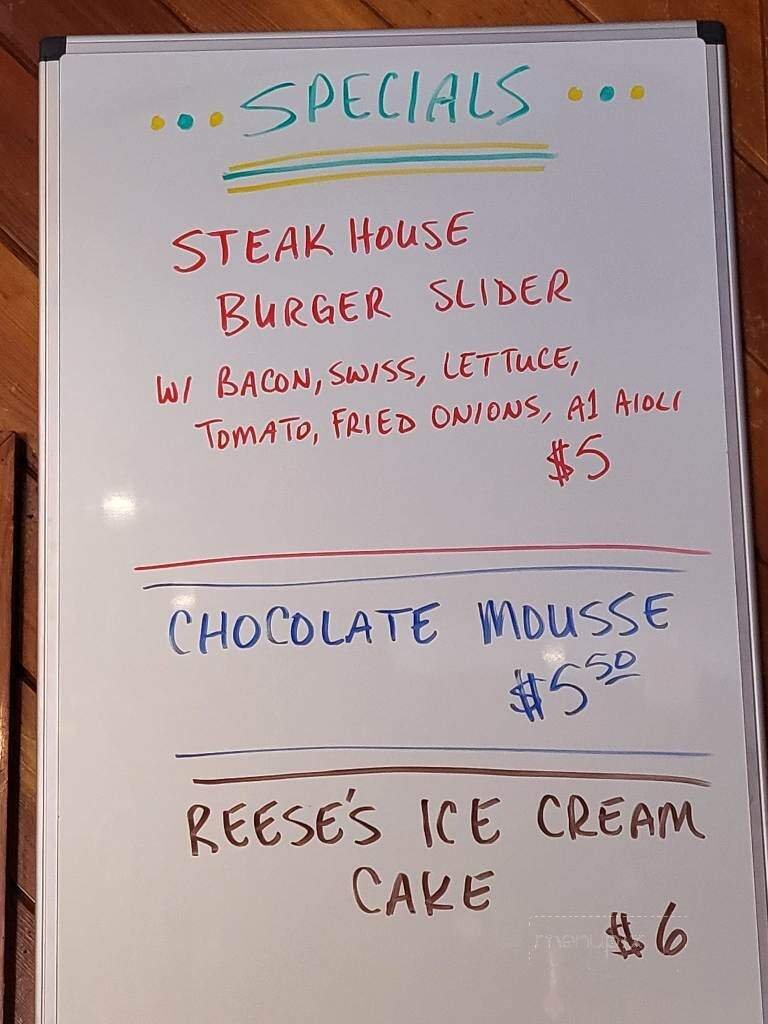 SPECIALS
STEAK HOUSE
BURGER SLIDER
W/ BACON, SWISS, LETTUCE,
TOMATO, FRIED ONIONS, A1 AIOLI
$5
CHOCOLATE MOUSSE
$5 50
REESE'S ICE CREAM
CAKE
$6